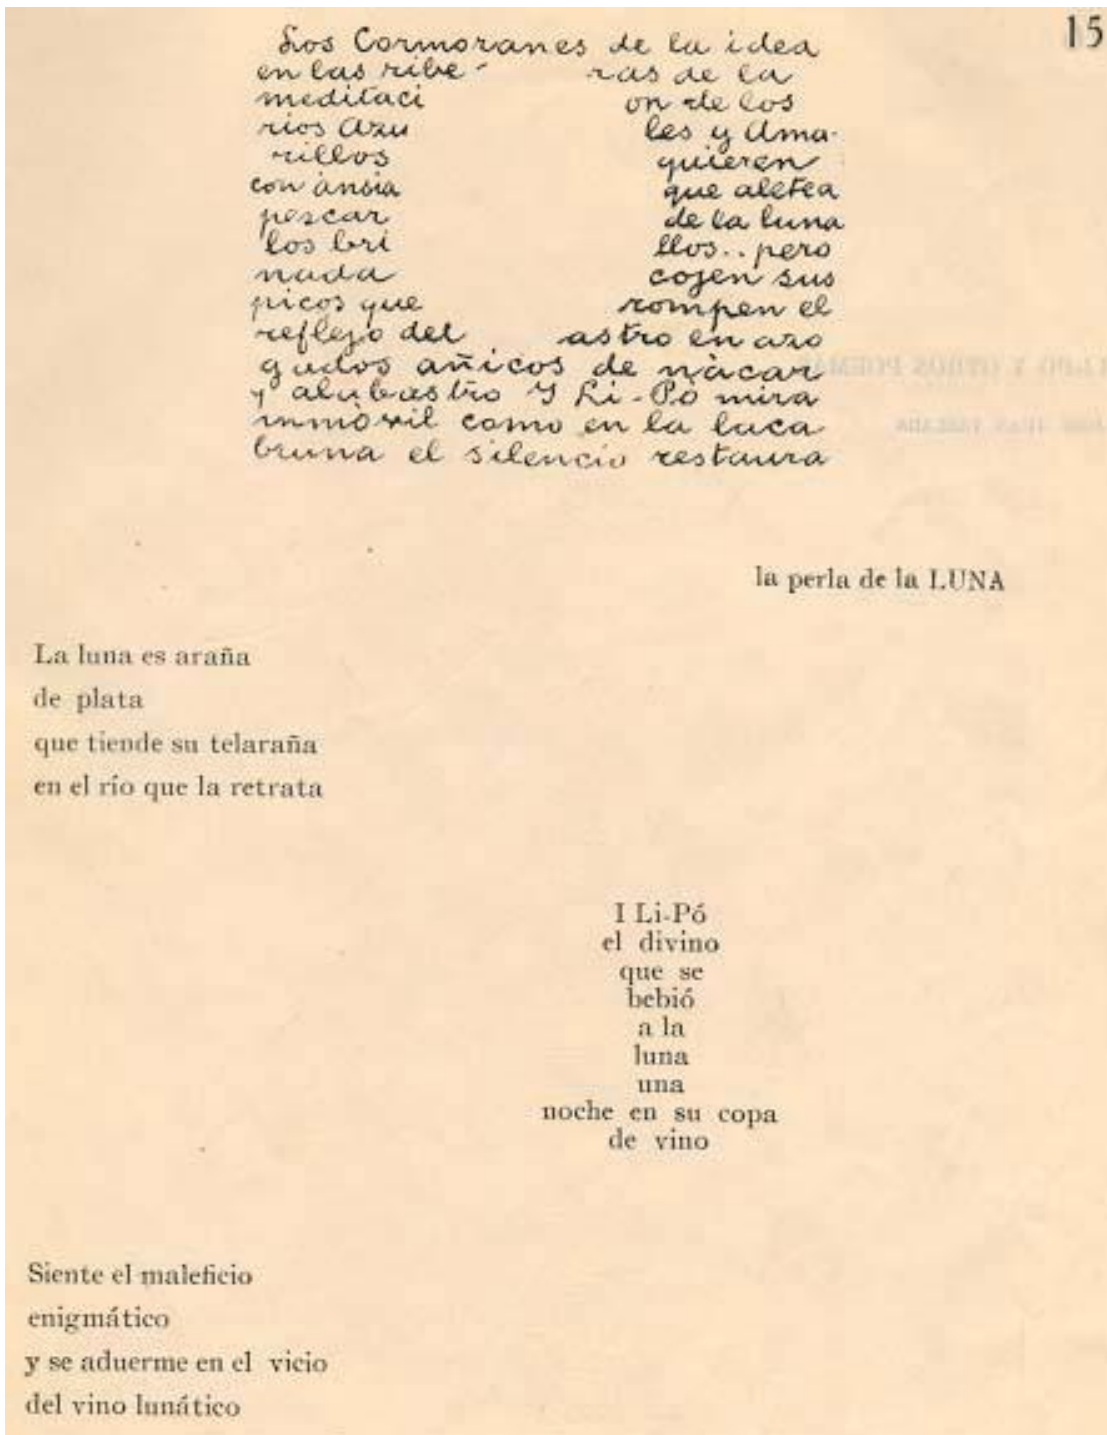 15
Los Cormoranes de la idea
en las ribe- ras de la
meditaci on de los
rios Azu les y Ama-
rillos quieren
con ànsia que aletea
pescar de la luna
los bri llos.. pero
nada cojen sus
picos que rompen el
reflejo del astro en azo
gados añicos de nàcar
y alabastro Y Li-Pó mira
inmòvil como en la laca
bruna el silencio restaura
la perla de la LUNA
La luna es araña
de plata
que tiende su telaraña
en el río que la retrata
I Li-Pó
el divino
que se
bebió
a la
luna
una
noche en su copa
de vino
Siente el maleficio
enigmático
y se aduerme en el vicio
del vino lunático